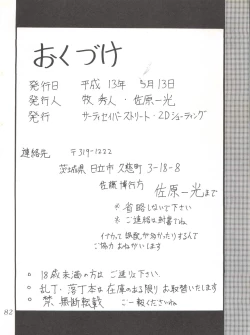 おくづけ
発行日 平成13年 5月13日
発行人 牧 秀人・佐原一光
発行 サーディセイバーストリート・2Dシューティング
連絡先 〒319-1222
茨城県 日立市 久慈町 3-18-8
佐藤 博行方
佐原一光まで
※ 省略しないで下さい
※ ご連絡は封書でね
イタズラ 誤配が多かったりするんで
ご協力おねがいします
○ 18歳未満の方は ご遠りょ下さい
○ 乱丁・落丁本は 在庫の出る限り お取替いたします
○ 禁 無断転載 ご一報くださいね
82